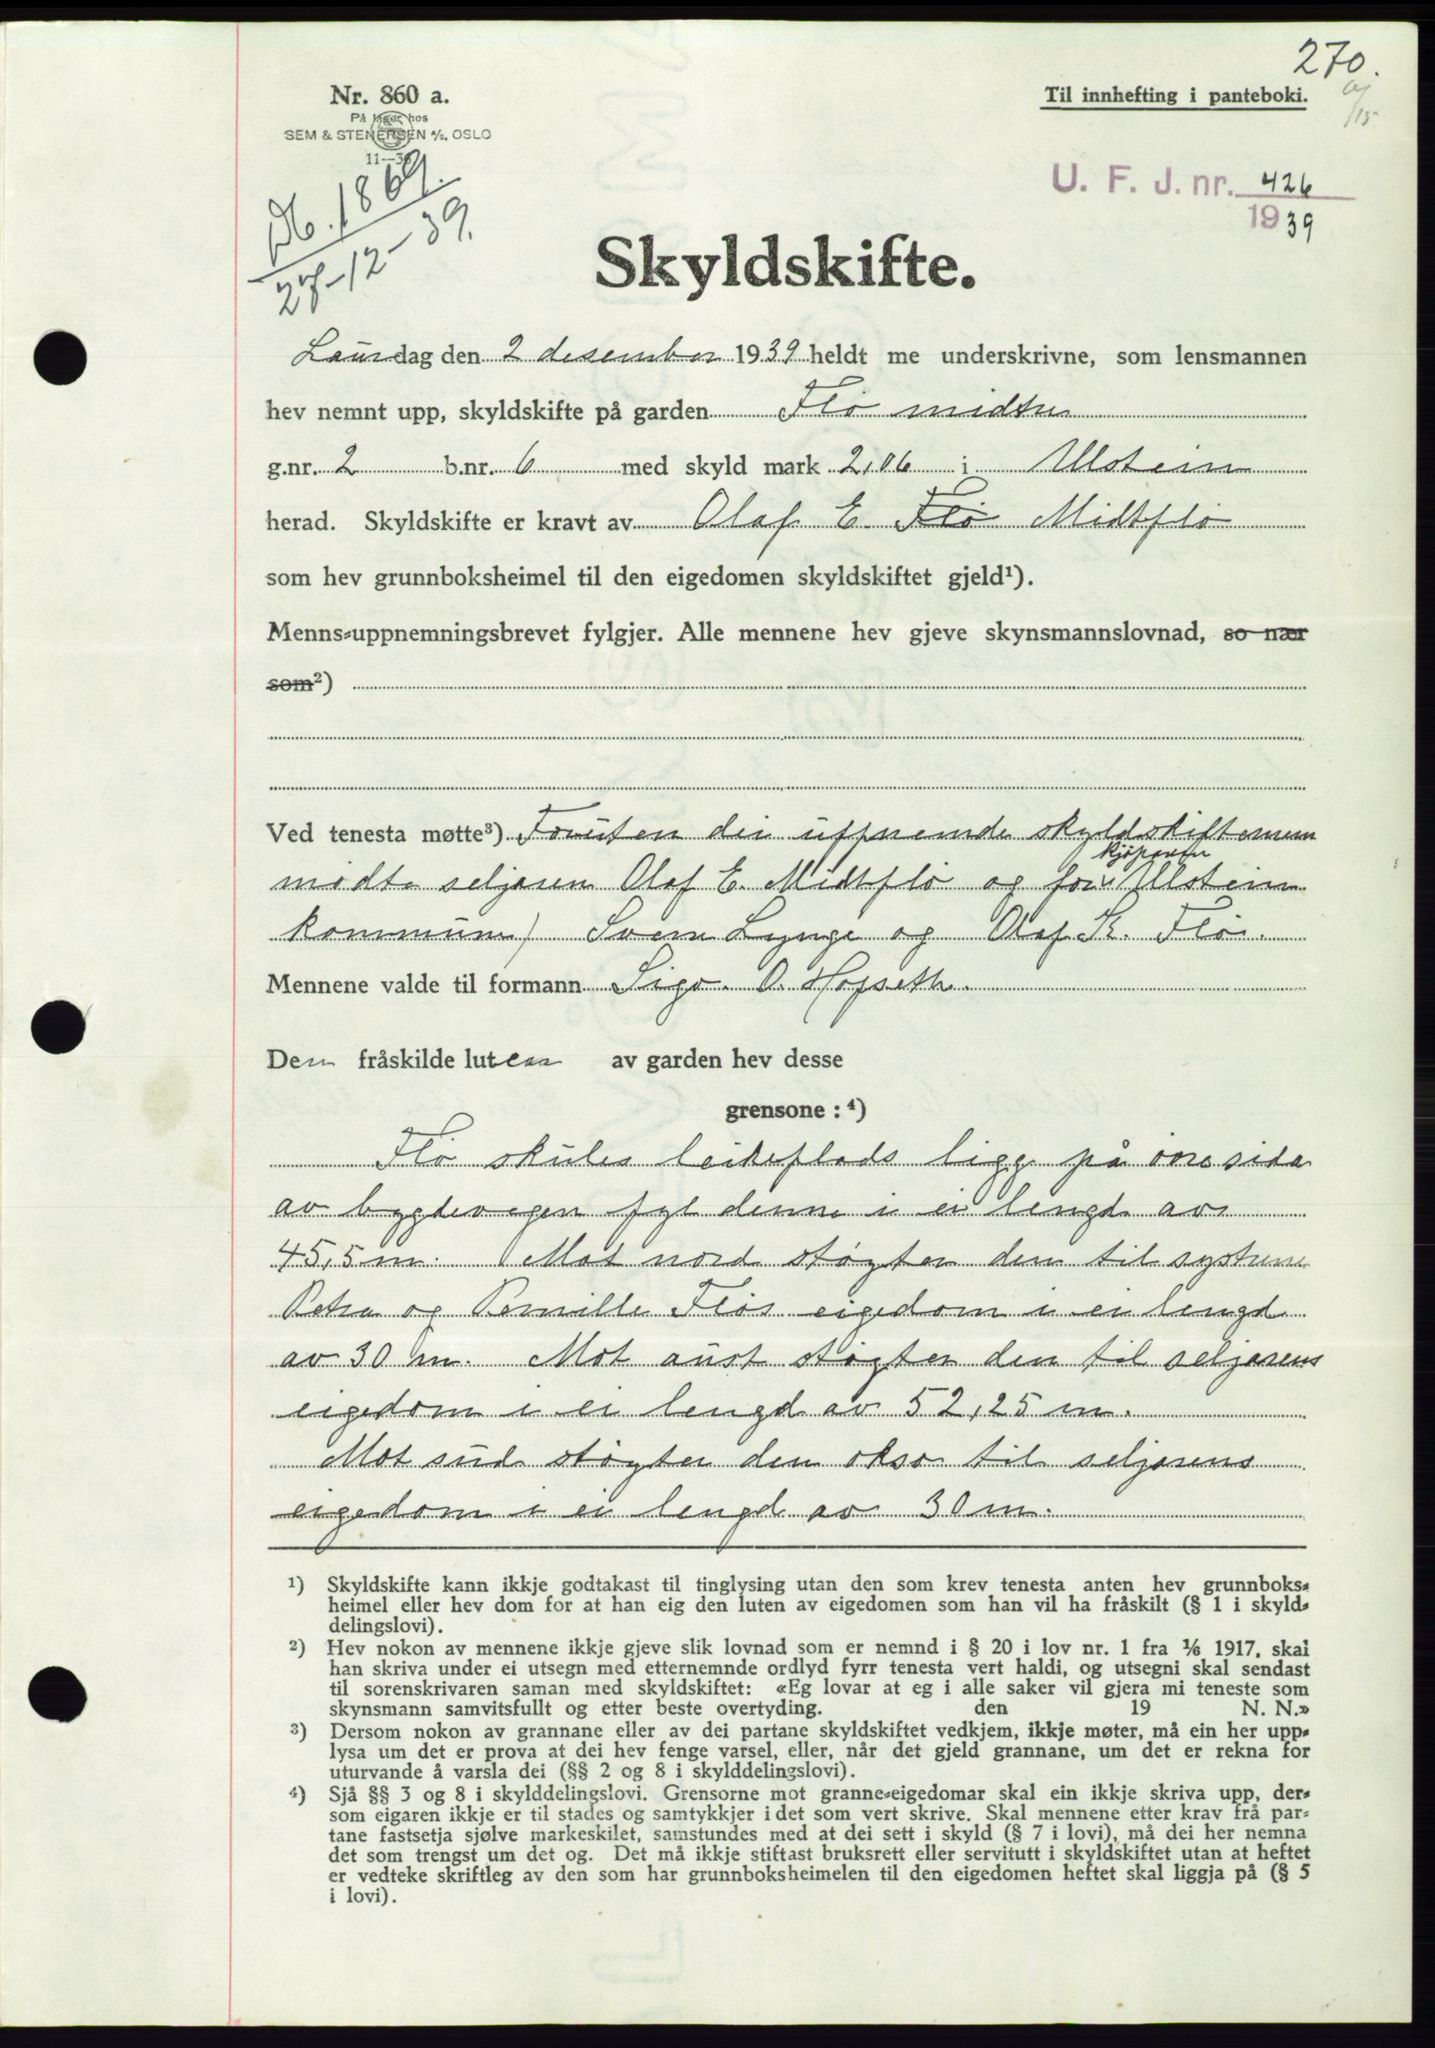 270.
Nr. 860 a.
Til innhefting i panteboki.
På lager hos
SEM & STENERSEN A/S, OSLO
11—36
Db. 1869.
27-12-39.
U. F. J. nr. 426
1939
Skyldskifte.
Laurdag den 2 desember 1939 heldt me underskrivne, som lensmannen
hev nemnt upp, skyldskifte på garden Flø midtre
g.nr. 2 b.nr. 6 med skyld mark 2,06 i Ulstein
herad. Skyldskifte er kravt av Olaf E. Flø Midtflø
som hev grunnboksheimel til den eigedomen skyldskiftet gjeld¹).
Menns-uppnemningsbrevet fylgjer. Alle mennene hev gjeve skynsmannslovnad, so nær
som²)
Ved tenesta møtte³) Foruten dei uppnemde skyldskiftemenn
kjøparen
møtte seljaren Olaf E. Midtflø og for Ulstein
kommune) Svein Lynge og Olaf K. Flø.
Mennene valde til formann Sigv. O. Hofseth.
Den fråskilde luten av garden hev desse
grensone : ⁴)
Flø skules leikeplads ligg på øvre sida
av bygdevegen fyl denne i ei lengd av
45,5 m. Mot nord støyter den til systrene
Petra og Pernille Fløs eigedom i ei lengd
av 30 m. Mot aust støyter den til seljarens
eigedom i ei lengd av 52,25 m.
Mot sud støyter den okso til seljarens
eigedom i ei lengd av 30 m.
¹) Skyldskifte kann ikkje godtakast til tinglysing utan den som krev tenesta anten hev grunnboks-
heimel eller hev dom for at han eig den luten av eigedomen som han vil ha fråskilt (§ 1 i skyld-
delingslovi).
²) Hev nokon av mennene ikkje gjeve slik lovnad som er nemnd i § 20 i lov nr. 1 fra 1/6 1917, skal
han skriva under ei utsegn med etternemnde ordlyd fyrr tenesta vert haldi, og utsegni skal sendast
til sorenskrivaren saman med skyldskiftet: «Eg lovar at eg i alle saker vil gjera mi teneste som
skynsmann samvitsfullt og etter beste overtyding. den 19 N. N.»
³) Dersom nokon av grannane eller av dei partane skyldskiftet vedkjem, ikkje møter, må ein her upp-
lysa um det er prova at dei hev fenge varsel, eller, når det gjeld grannane, um det er rekna for
uturvande å varsla dei (§§ 2 og 8 i skylddelingslovi).
⁴) Sjå §§ 3 og 8 i skylddelingslovi. Grensorne mot granne-eigedomar skal ein ikkje skriva upp, der-
som eigaren ikkje er til stades og samtykkjer i det som vert skrive. Skal mennene etter krav frå par-
tane fastsetja sjølve markeskilet, samstundes med at dei sett i skyld (§ 7 i lovi), må dei her nemna
det som trengst um det og. Det må ikkje stiftast bruksrett eller servitutt i skyldskiftet utan at heftet
er vedteke skriftleg av den som har grunnboksheimelen til den eigedomen heftet skal liggja på (§ 5
i lovi).